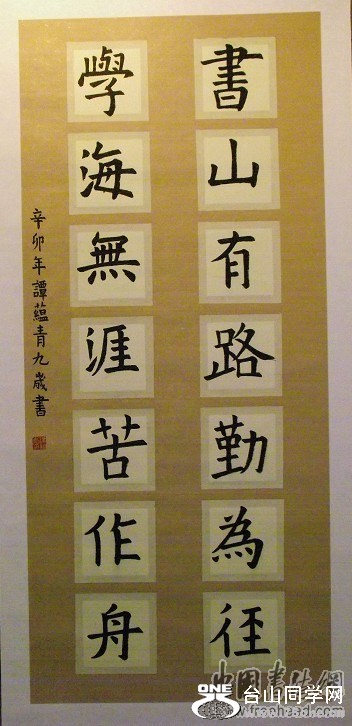 書山有路勤為徑
學海無涯苦作舟
辛卯年譚蘊青九歲書
中国書法網
ONE
台山同学网